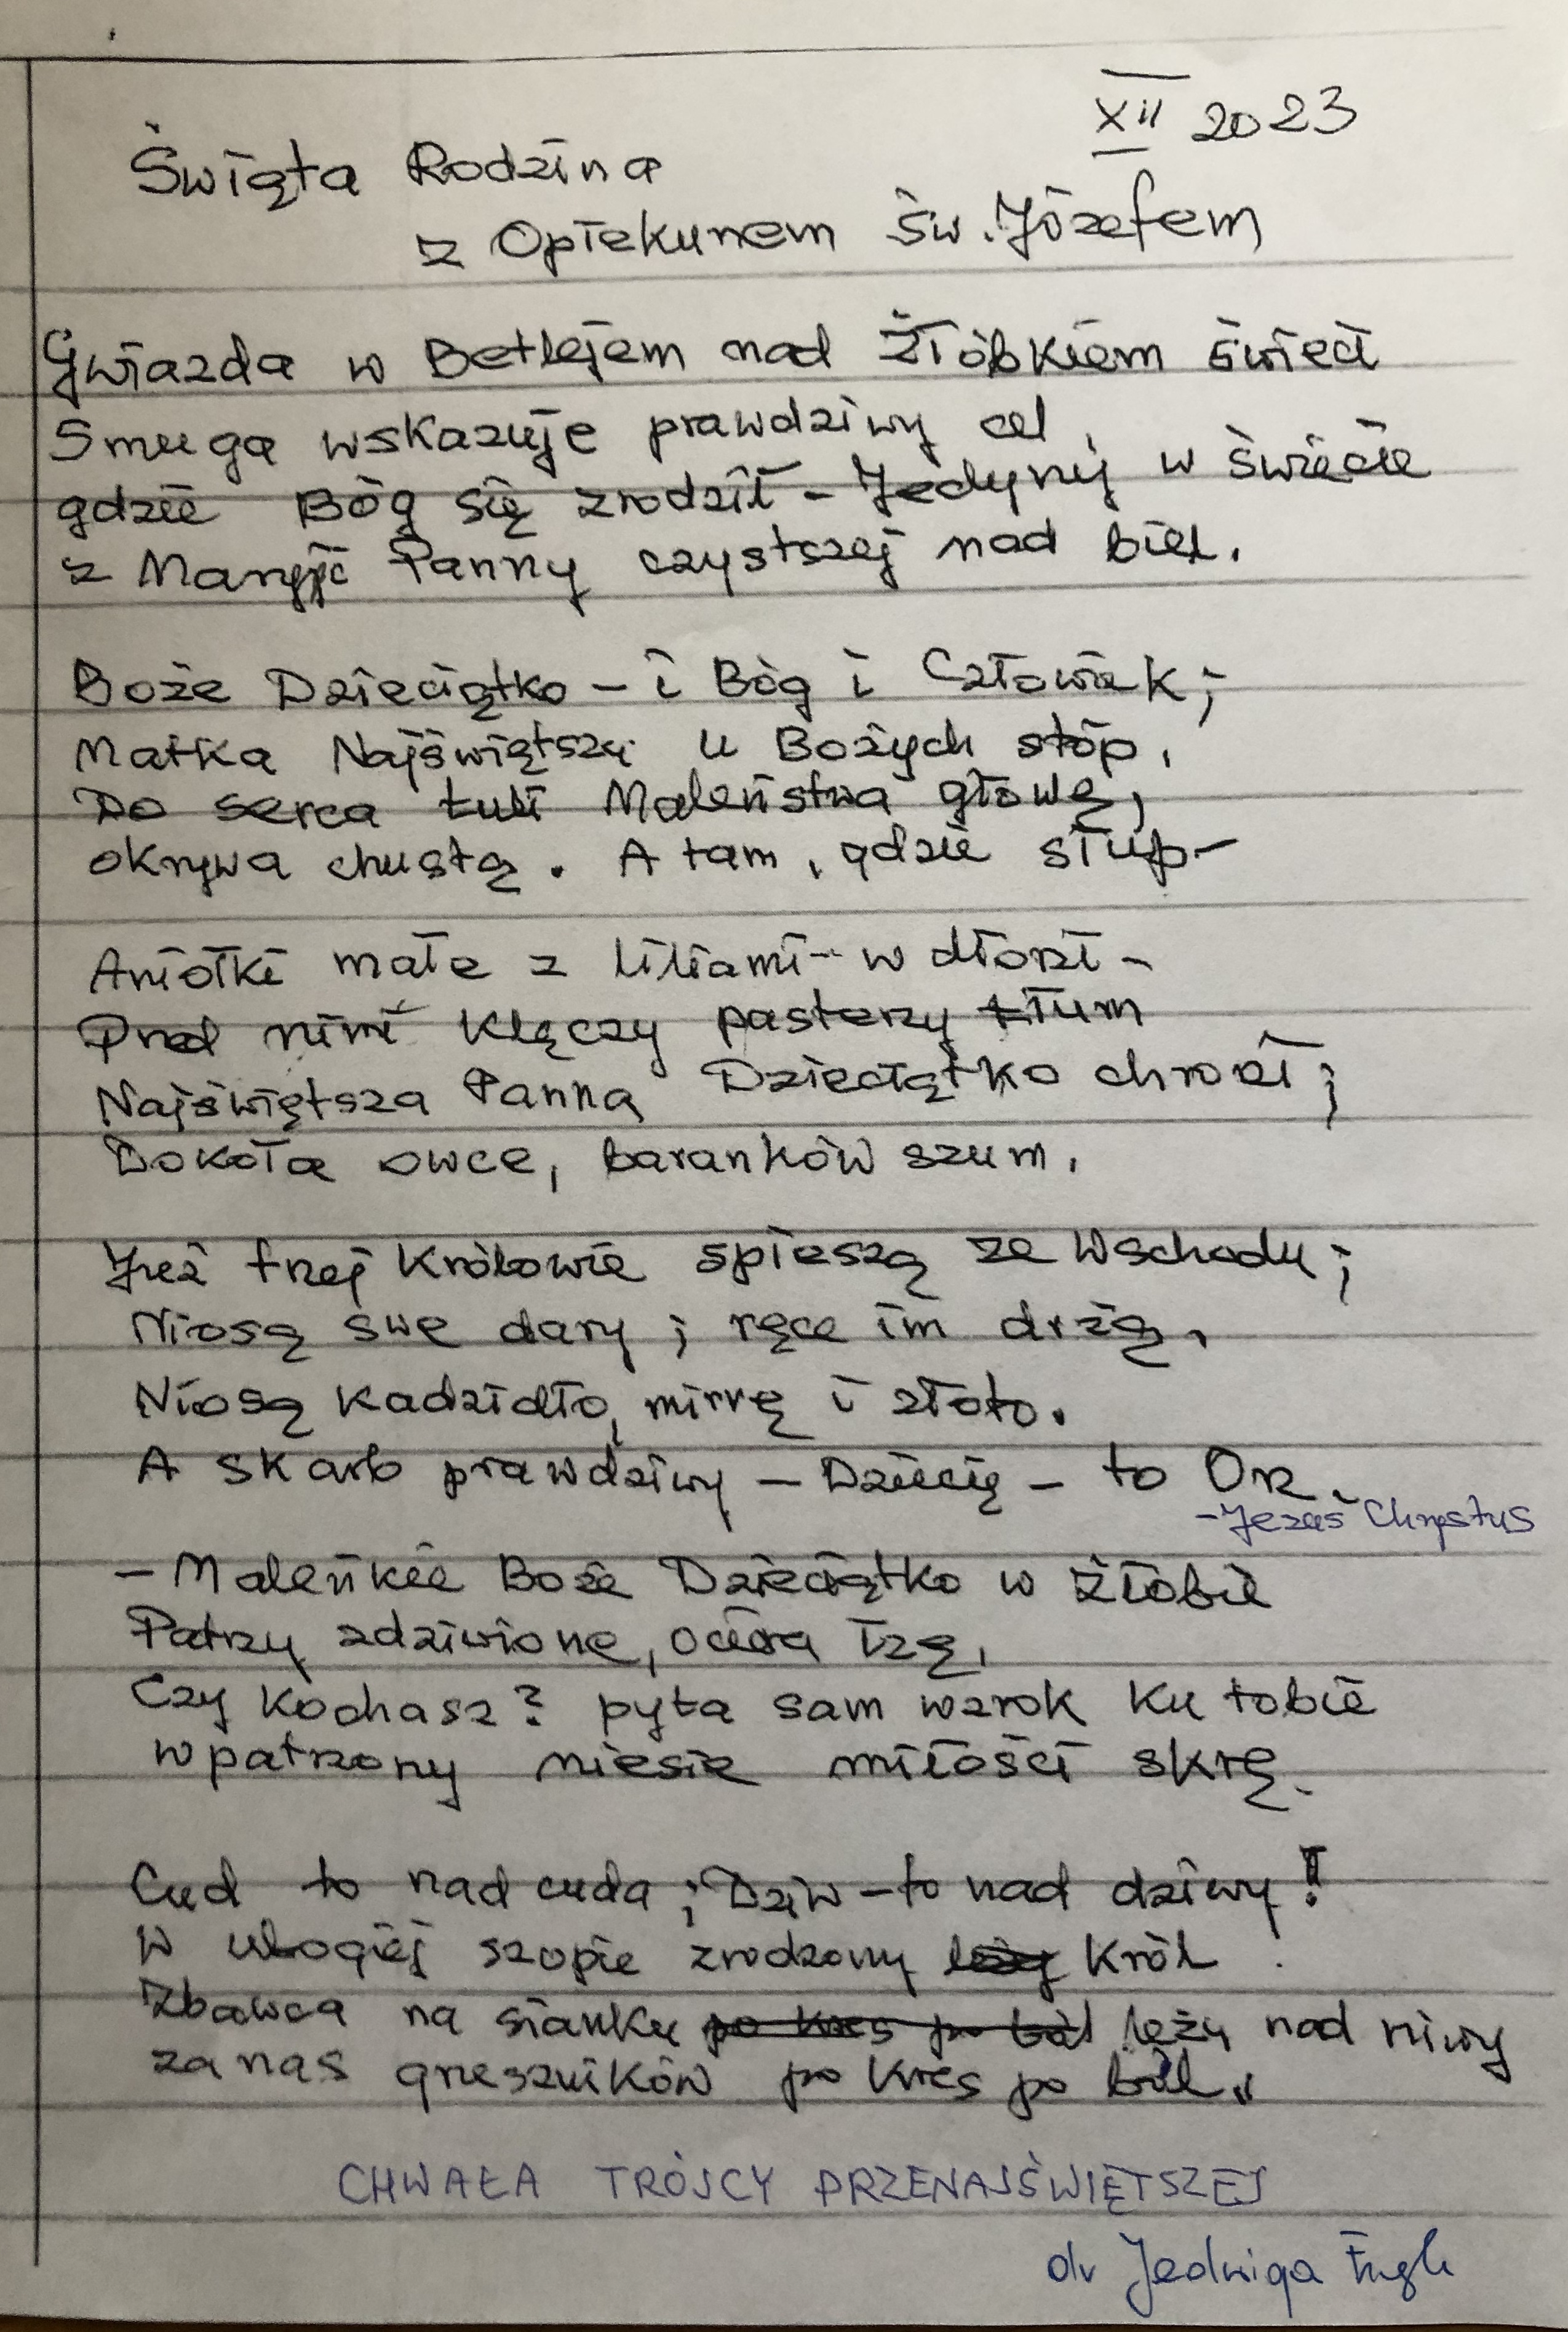 XII 2023
Święta Rodzina
z Opiekunem św. Józefem
Gwiazda w Betlejem nad Żłóbkiem świeci
Smuga wskazuje prawdziwy cel,
gdzie Bóg się zrodził - Jedyny w świecie
z Maryji Panny czystszej nad biel.
Boże Dzieciątko - i Bóg i Człowiek;
Matka Najświętsza u Bożych stóp,
Do serca tuli Maleństwa głowę,
okrywa chustą. A tam, gdzie słup-
Aniołki małe z liliami - w dłoni -
Przed nimi klęczy pasterzy tłum
Najświętsza Panna Dzieciątko chroni;
Dokoła owce, baranków szum.
Już trzej Królowie spieszą ze Wschodu;
Niosą swe dary; ręce im drżą,
Niosą kadzidło, mirrę i złoto.
A skarb prawdziwy - Dziecię - to On.
- Jezus Chrystus
- Maleńkie Boże Dzieciątko w żłobie
Patrzy zdziwione, ociera łzę,
Czy kochasz? pyta sam wzrok ku tobie
wpatrzony niesie miłości skrę.
Cud to nad cuda; Dziw - to nad dziwy!
W ubogiej szopie zrodzony leży Król
Zbawca na sianku po kres po ból leży nad niwy
za nas grzeszników po kres po ból.
CHWAŁA TRÓJCY PRZENAJŚWIĘTSZEJ
dr Jadwiga